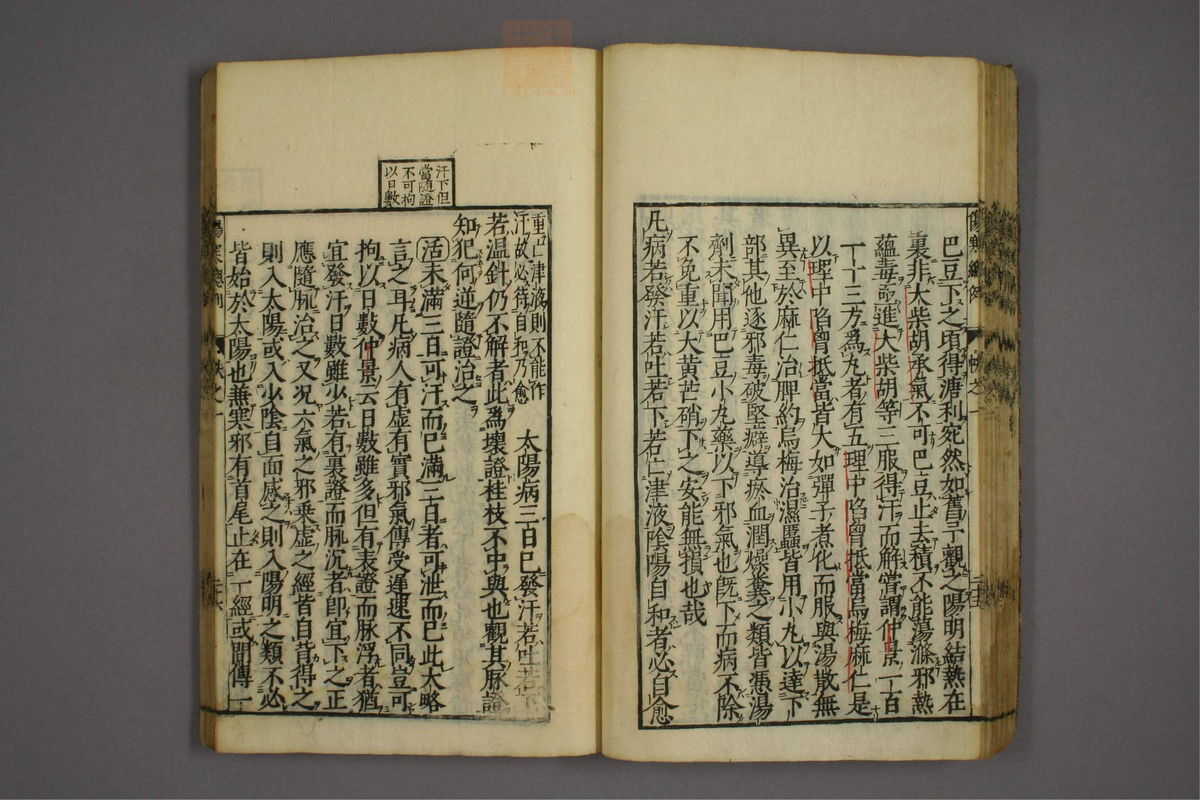 巴豆下之頃得溏利宛然如舊予觀之陽明結熱在
裏非大柴胡承氣不可巴豆止去積不能蕩滌邪熱
蘊毒亟進大柴胡等三服得汗而解嘗謂仲景一百
一十三方為丸者有五理中陷胷抵當烏梅麻仁是
以理中陷胷抵當皆大如彈子煮化而服與湯散無
異至於麻仁治脾約烏梅治濕䘌皆用小丸以達下
部其他逐邪毒破堅癖導瘀血潤燥糞之類皆憑湯
劑未聞用巴豆小丸藥以下邪氣也既下而病不除
不免重以大黃芒硝下之安能無損也哉
凡病若發汗若吐若下若亡津液陰陽自和者必自愈
重亡津液則不能作
汗故必待自和乃愈
太陽病三日已發汗若吐若下
若温針仍不解者此爲壞證桂枝不中與也觀其脉證
知犯何逆隨證治之
活未滿三日可汗而已滿三日者可泄而已此大略
言之耳凡病人有虚有實邪氣傳受遲速不同豈可
拘以日數仲景云日數雖多但有表證而脉浮者猶
宜發汗日數雖少若有裏證而脉沉者卽宜下之正
應隨脉治之又況六氣之邪乘虚之經皆自背得之
則入太陽或入少陰自面感之則入陽明之類不必
皆始於太陽也兼寒邪有首尾止在一經或間傳一
汗下但
當隨證
不可拘
以日數